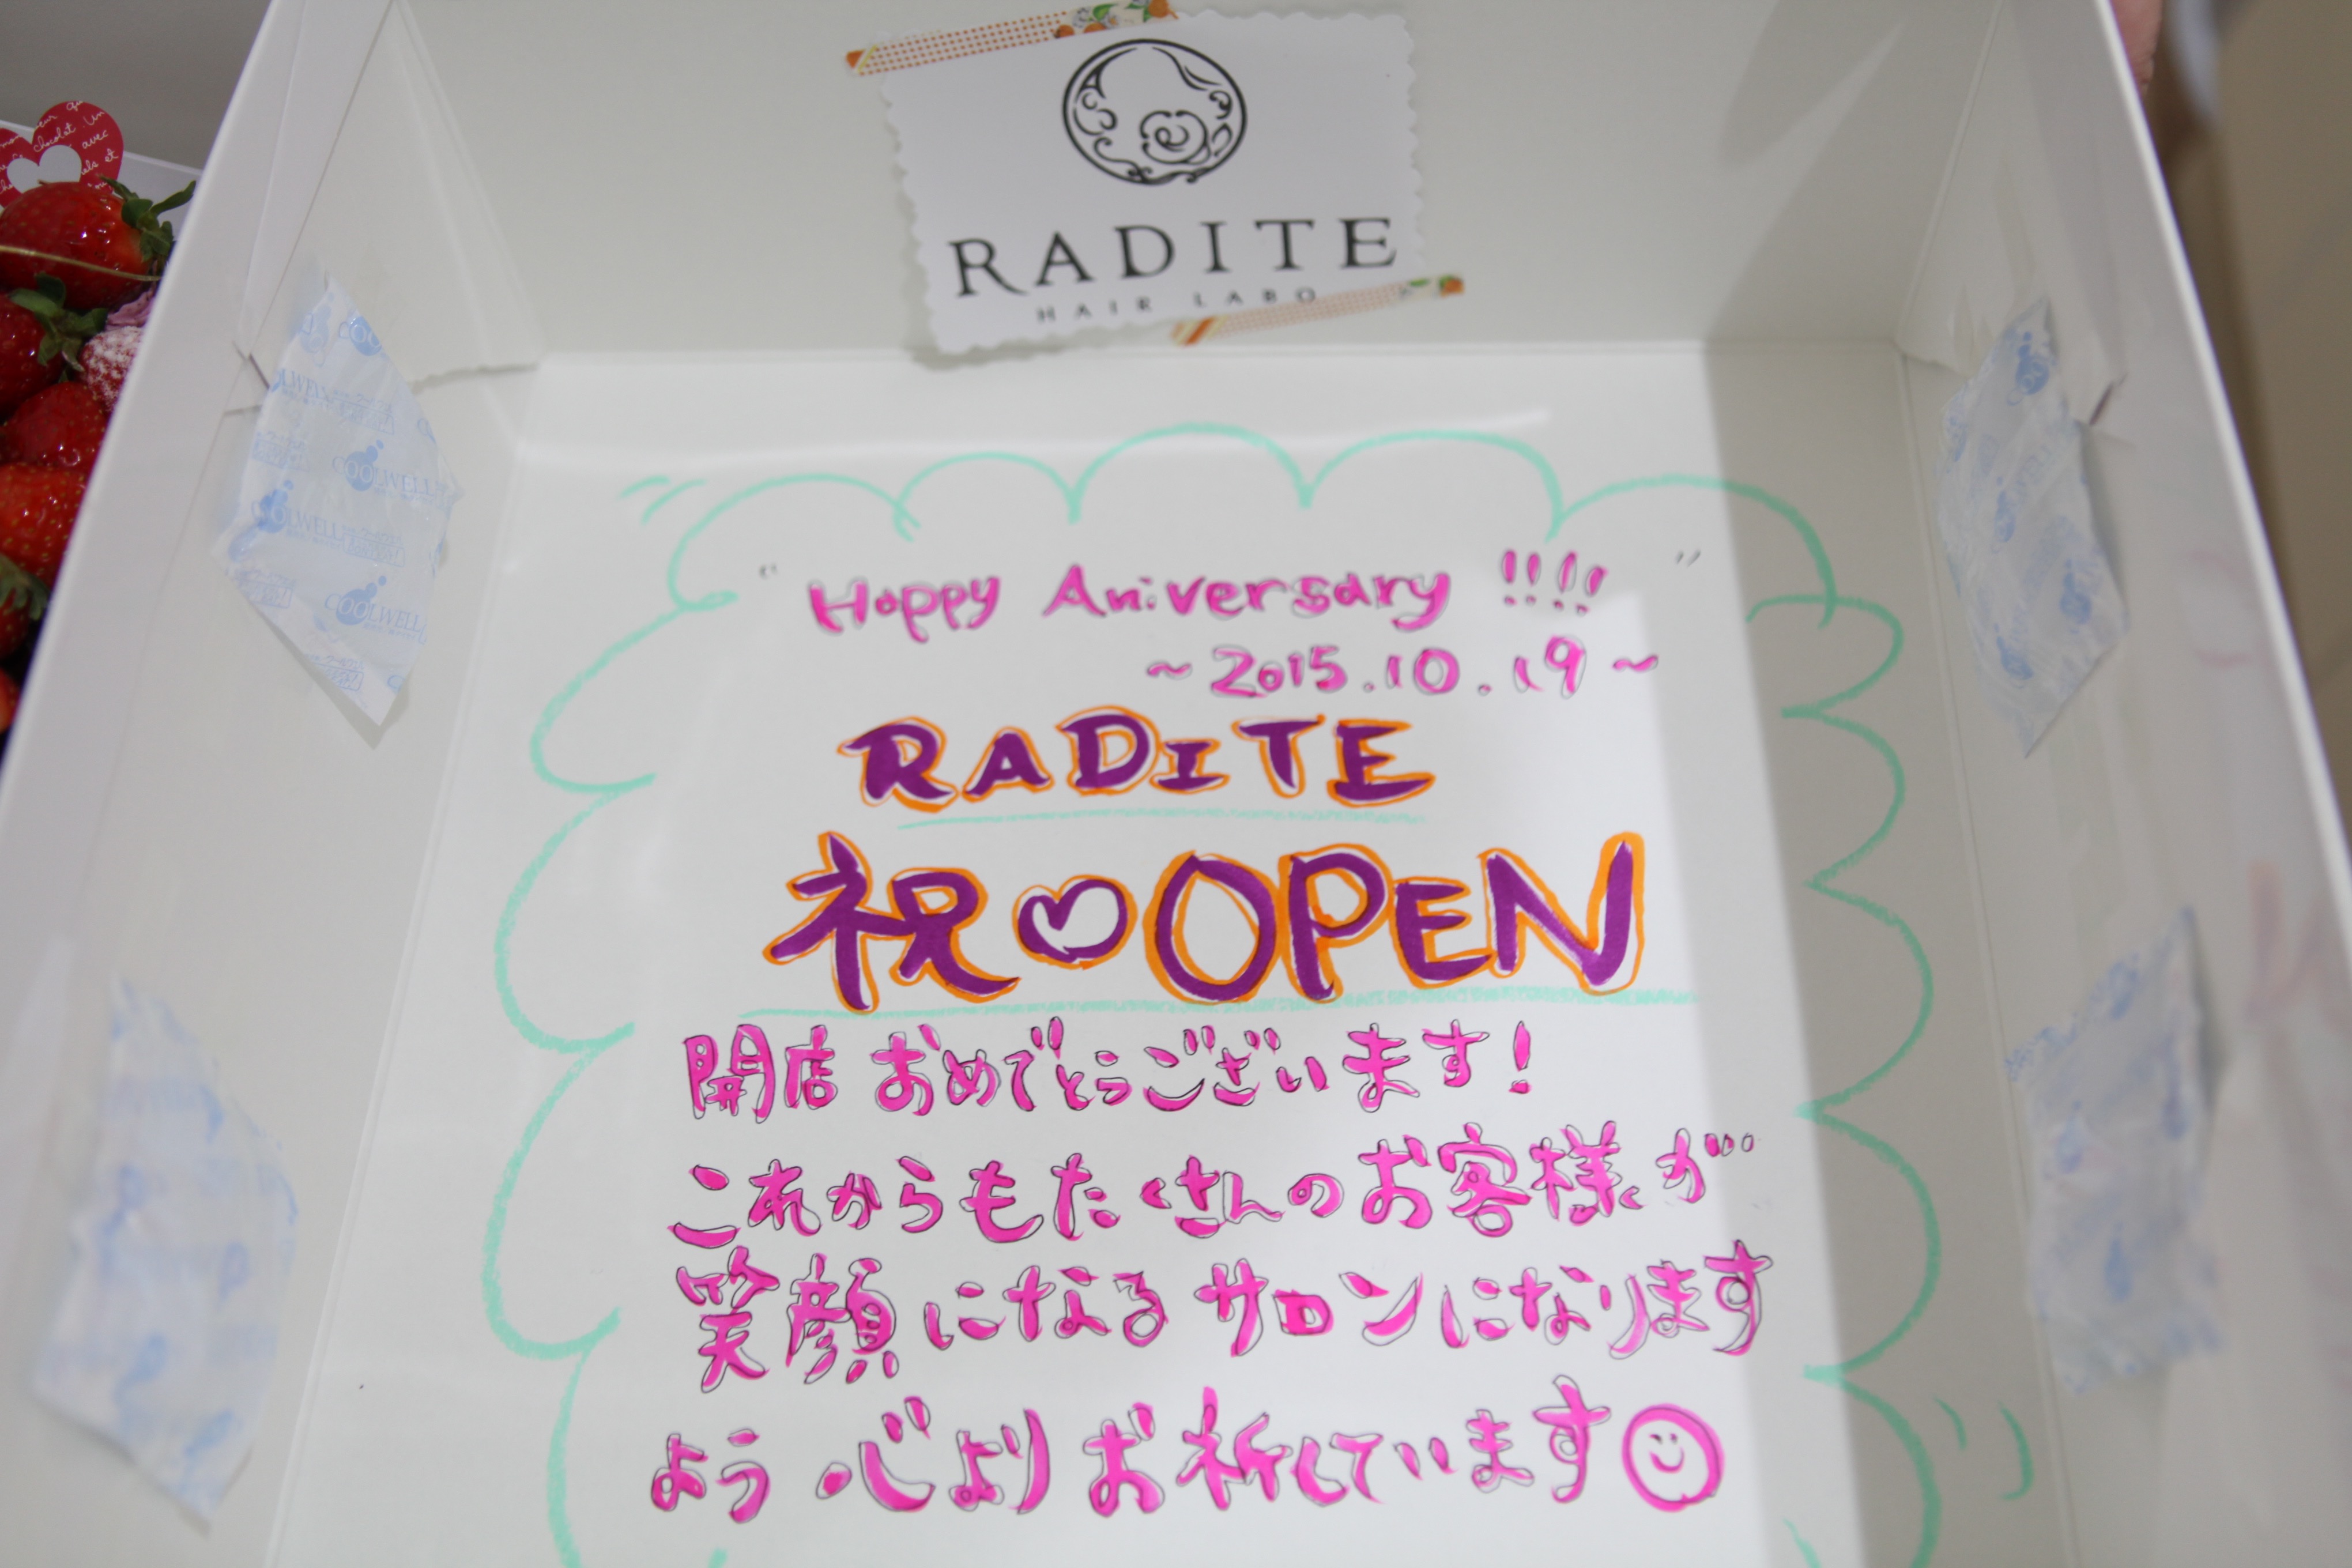 RADITE
HAIR LABO
" Happy Aniversary !!!! "
~2015.10.19~
RADITE
祝♡OPEN
開店おめでとうございます!
これからもたくさんのお客様が
笑顔になるサロンになります
よう心よりお祈しています
COOLWELL
COOLWELL
COOLWELL
chocolat un
avec